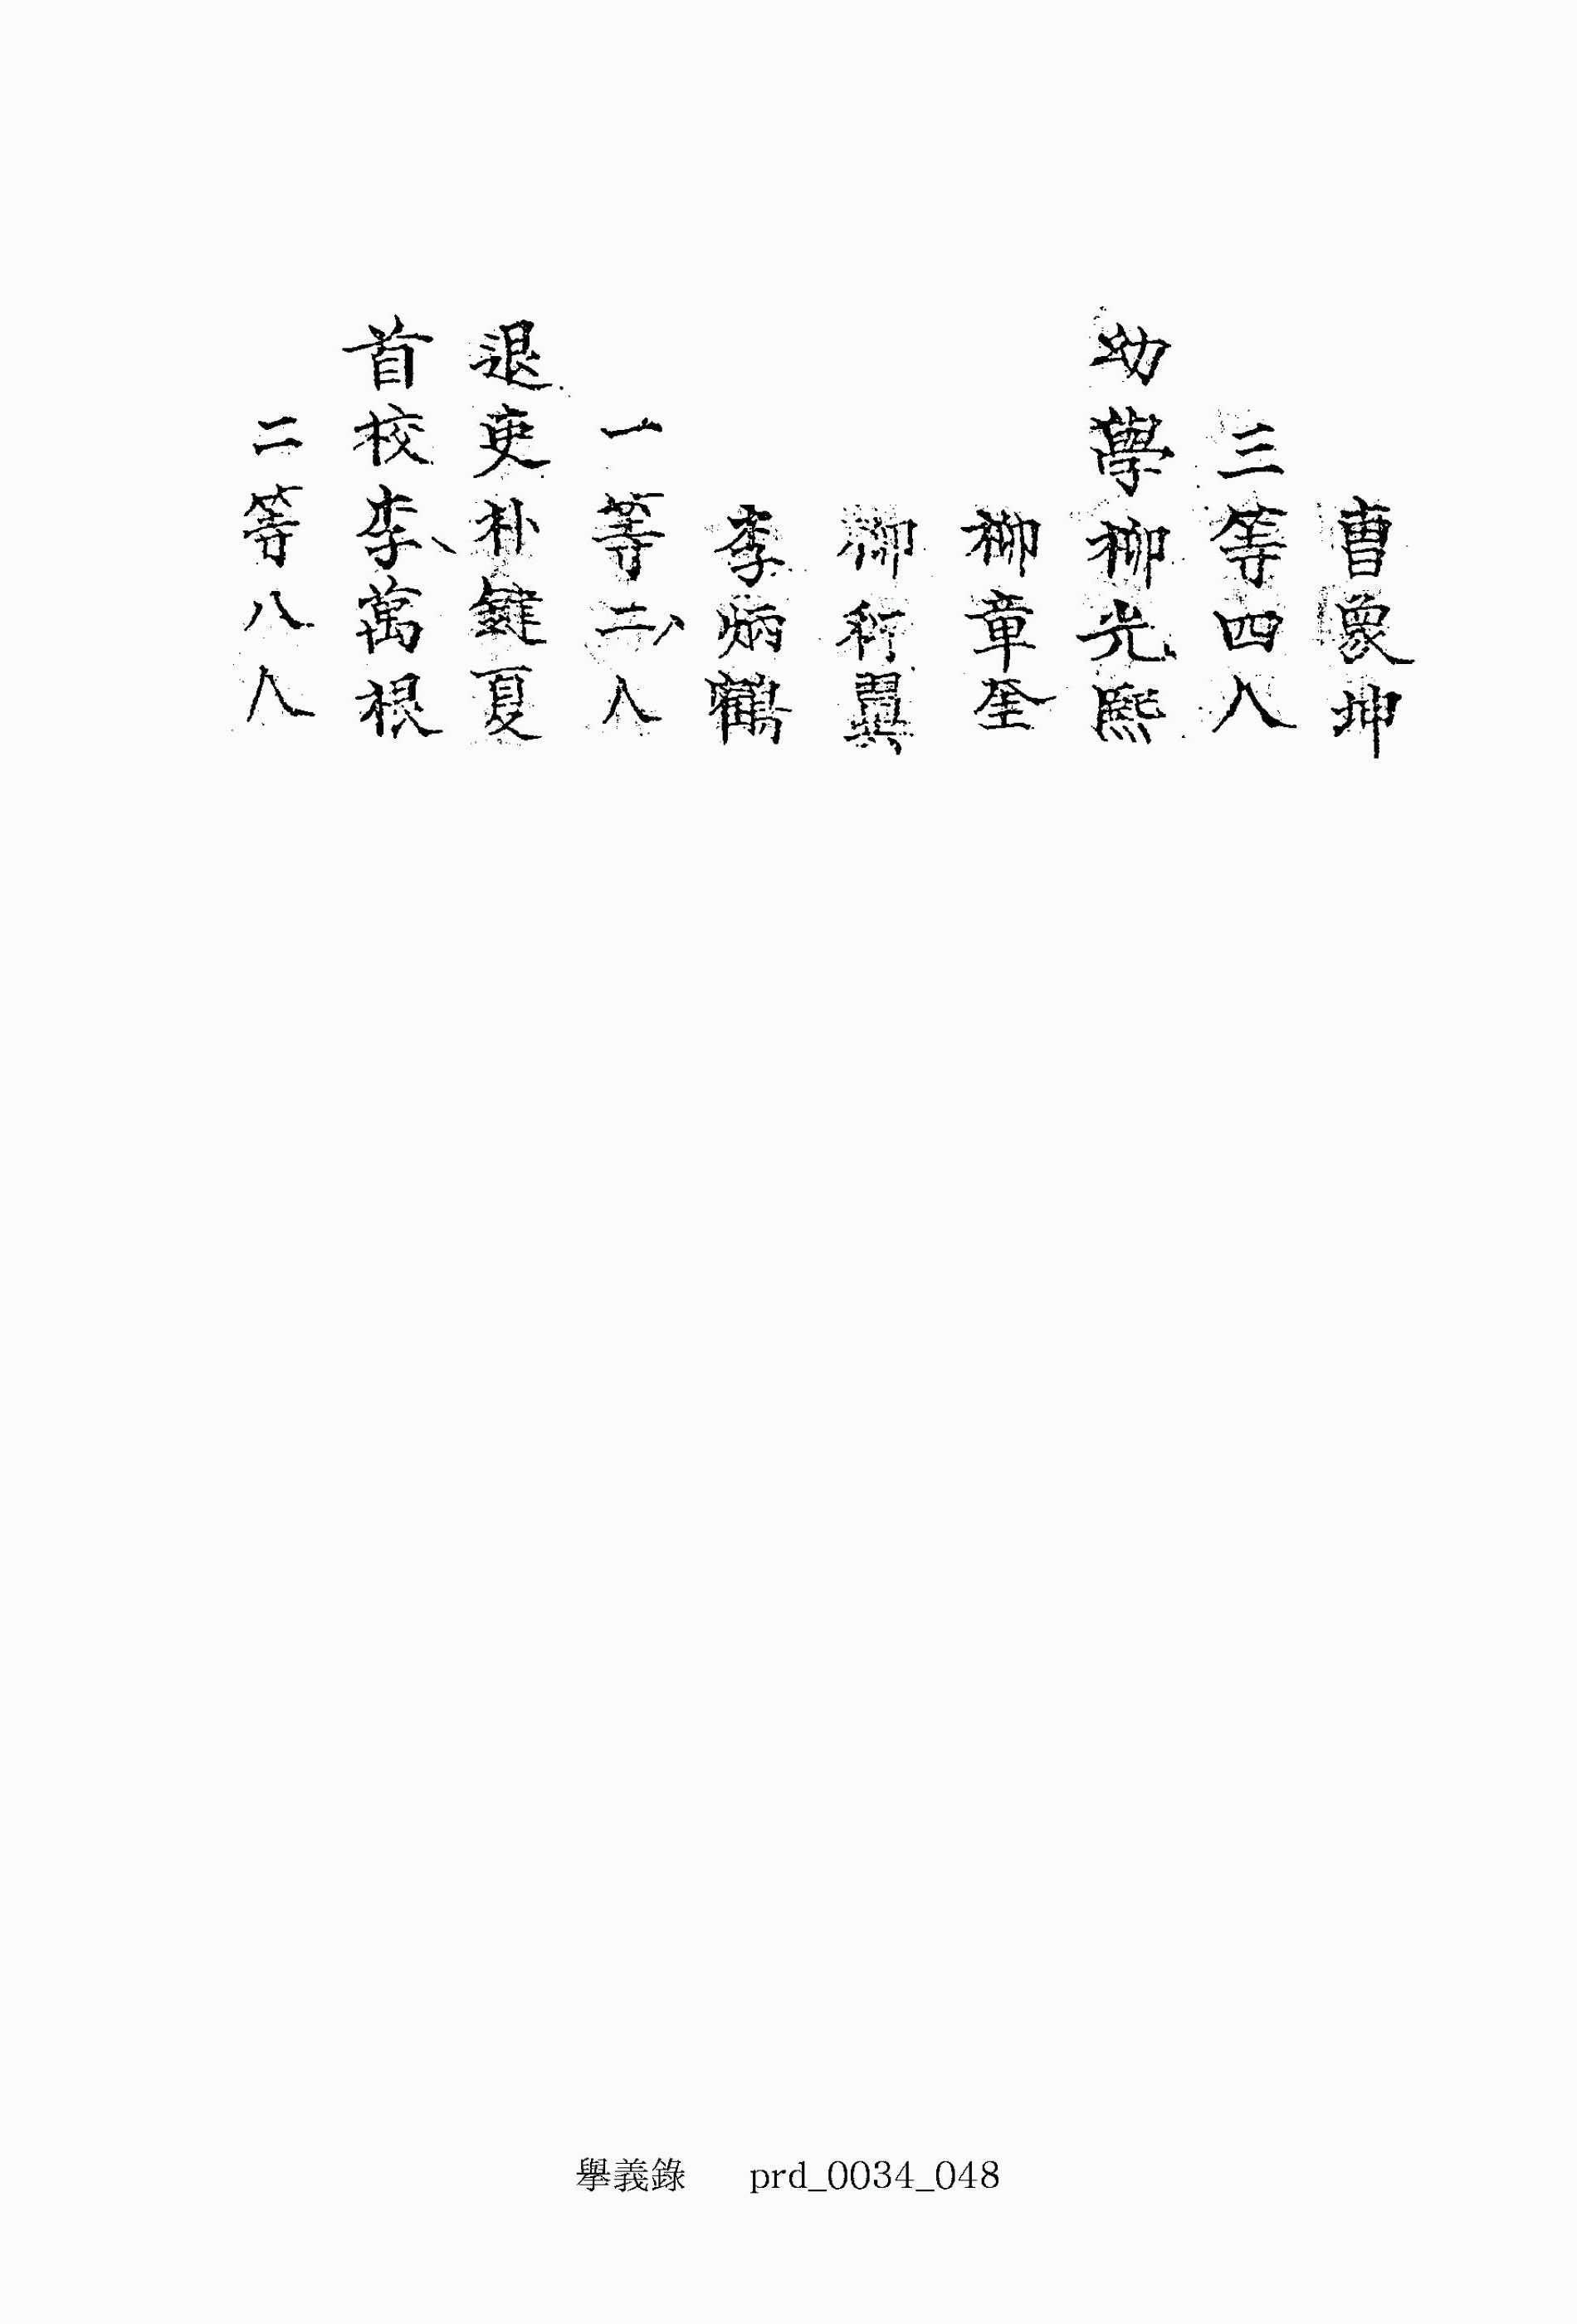 曹象坤
三等四人
幼學柳光熙
柳章奎
柳衍翼
李炳鶴
一等二人
退吏朴鍵夏
首校李萬根
二等八人
擧義錄 prd_0034_048